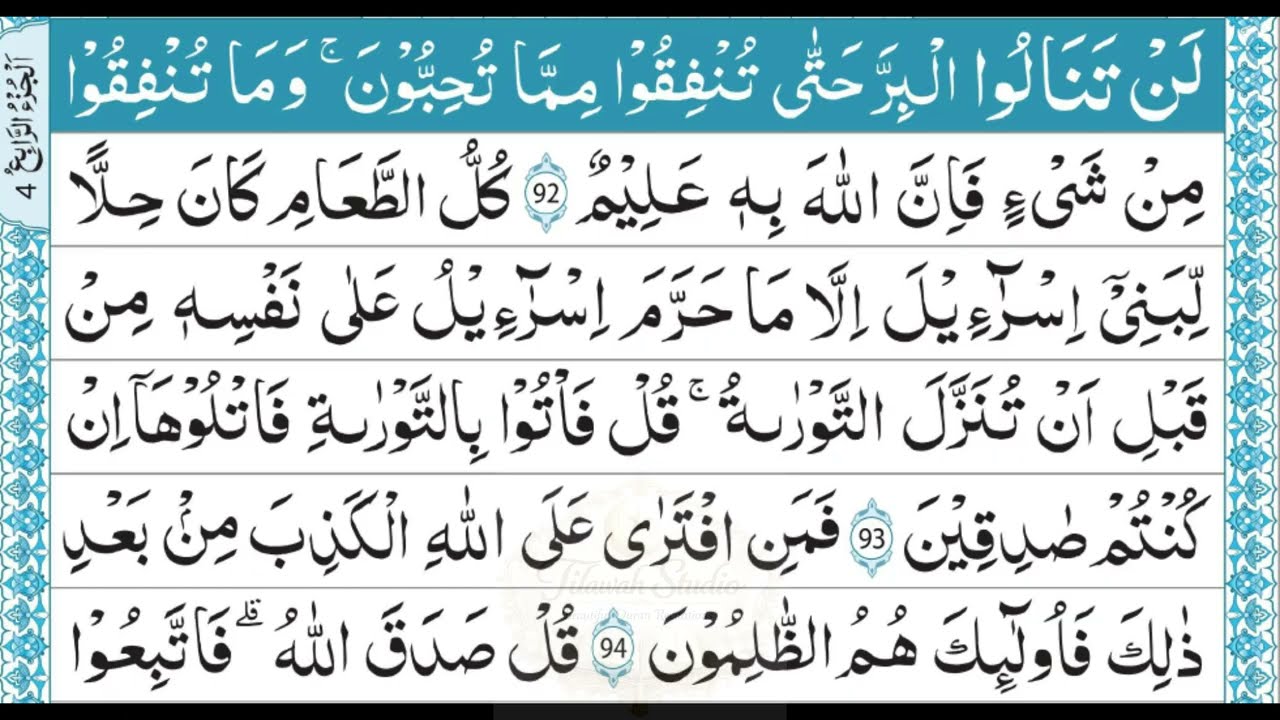 اَلْجُزْءُ الرَّابِعُ 4
لَنْ تَنَالُوا الْبِرَّ حَتّٰى تُنْفِقُوْا مِمَّا تُحِبُّوْنَ ۚ وَمَا تُنْفِقُوْا
مِنْ شَىْءٍ فَاِنَّ اللّٰهَ بِهٖ عَلِيْمٌ 92 كُلُّ الطَّعَامِ كَانَ حِلًّا
لِّبَنِىْٓ اِسْرَآءِيْلَ اِلَّا مَا حَرَّمَ اِسْرَآءِيْلُ عَلٰى نَفْسِهٖ مِنْ
قَبْلِ اَنْ تُنَزَّلَ التَّوْرٰىةُ ۚ قُلْ فَاْتُوْا بِالتَّوْرٰىةِ فَاتْلُوْهَاۤ اِنْ
كُنْتُمْ صٰدِقِيْنَ 93 فَمَنِ افْتَرٰى عَلَى اللّٰهِ الْكَذِبَ مِنْۢ بَعْدِ
ذٰلِكَ فَاُولٰٓئِكَ هُمُ الظّٰلِمُوْنَ 94 قُلْ صَدَقَ اللّٰهُ ۗ فَاتَّبِعُوْا
Tilawah Studio